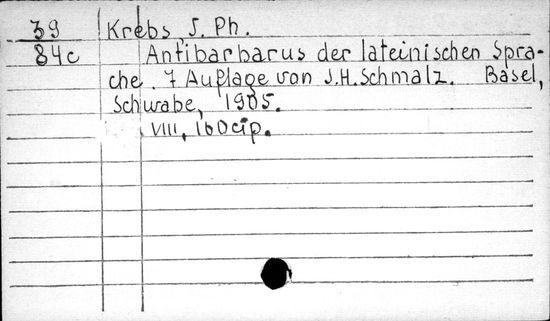 39 Krebs, J. Ph.
84c Antibarbarus der lateinischen Spra-
che. 7 Auflage von J.H. Schmalz. Basel,
Schwabe, 1905.
VIII, 160 cip.